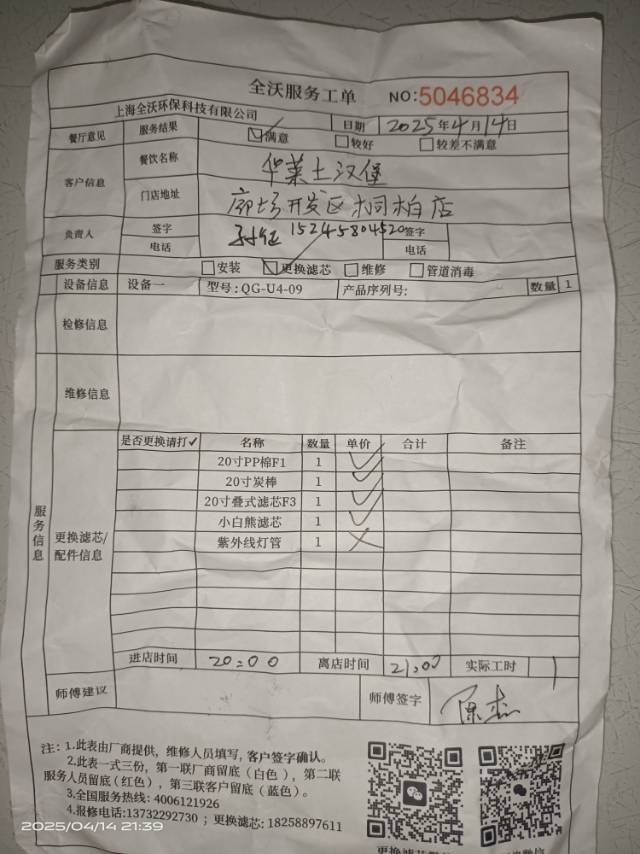 全沃服务工单 NO:5046834
上海全沃环保科技有限公司
餐厅意见 服务结果 ☑满意 日期 2025年4月14日
□较好 □较差不满意
客户信息 餐饮名称 华莱士汉堡
门店地址 廊坊开发区桐柏店
负责人 签字 15245804520 签字
电话 电话
服务类别 □安装 ☑更换滤芯 □维修 □管道消毒
设备信息 设备一 型号:QG-U4-09 产品序列号: 数量 1
检修信息
维修信息
服务信息
更换滤芯/配件信息
是否更换请打✓ 名称 数量 单价 合计 备注
20寸PP棉F1 1 ✓
20寸炭棒 1 ✓
20寸叠式滤芯F3 1 ✓
小白熊滤芯 1 ✓
紫外线灯管 1 ✗
进店时间 20:00 离店时间 21:00 实际工时 1
师傅建议 师傅签字
注：1.此表由厂商提供，维修人员填写，客户签字确认。
2.此表一式三份，第一联厂商留底（白色），第二联
服务人员留底(红色)，第三联客户留底（蓝色）。
3.全国服务热线: 4006121926
4.报修电话:13732292730；更换滤芯: 18258897611
2025/04/14 21:39